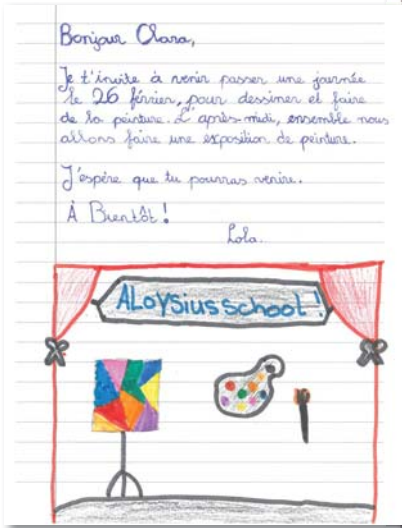 Bonjour Clara,
Je t'invite à venir passer une journée
le 26 février, pour dessiner et faire
de la peinture. L'après-midi, ensemble nous
allons faire une exposition de peinture.
J'espère que tu pourras venire.
À Bientôt !
Lola.
ALoysius school !